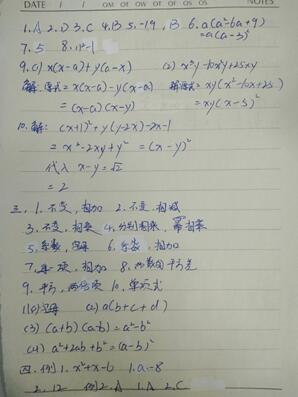 DATE / / NOTES
1. A 2. D 3. C 4. B 5. -1,9, B 6. a(a²-6a+9)
=a(a-3)²
7. 5 8. n²-1
9. (1) x(x-a)+y(a-x) (2) x³y-10x²y+25xy
解: 原式=x(x-a)-y(x-a) 解原式=xy(x²-10x+25)
=(x-a)(x-y) =xy(x-5)²
10. 解: (x+1)²+y(y-2x)-2x-1
=x²-2xy+y²=(x-y)²
代入 x-y=√2
=2
三. 1. 不变, 相加 2. 不变, 相减
3. 不变, 相乘 4. 分别相乘, 幂相乘
5. 系数, 字母 6. 每一项, 相加
7. 每一项, 相加 8. 两数的平方差
9. 平方, 两倍项 10. 单项式
11. (1) 字母 (2) a(b+c+d)
(3) (a+b)(a-b)=a²-b²
(4) a²+2ab+b²=(a-b)²
四. 例1. x²+x-6 1. a-8
2. 12 例2. A 1. A 2. C